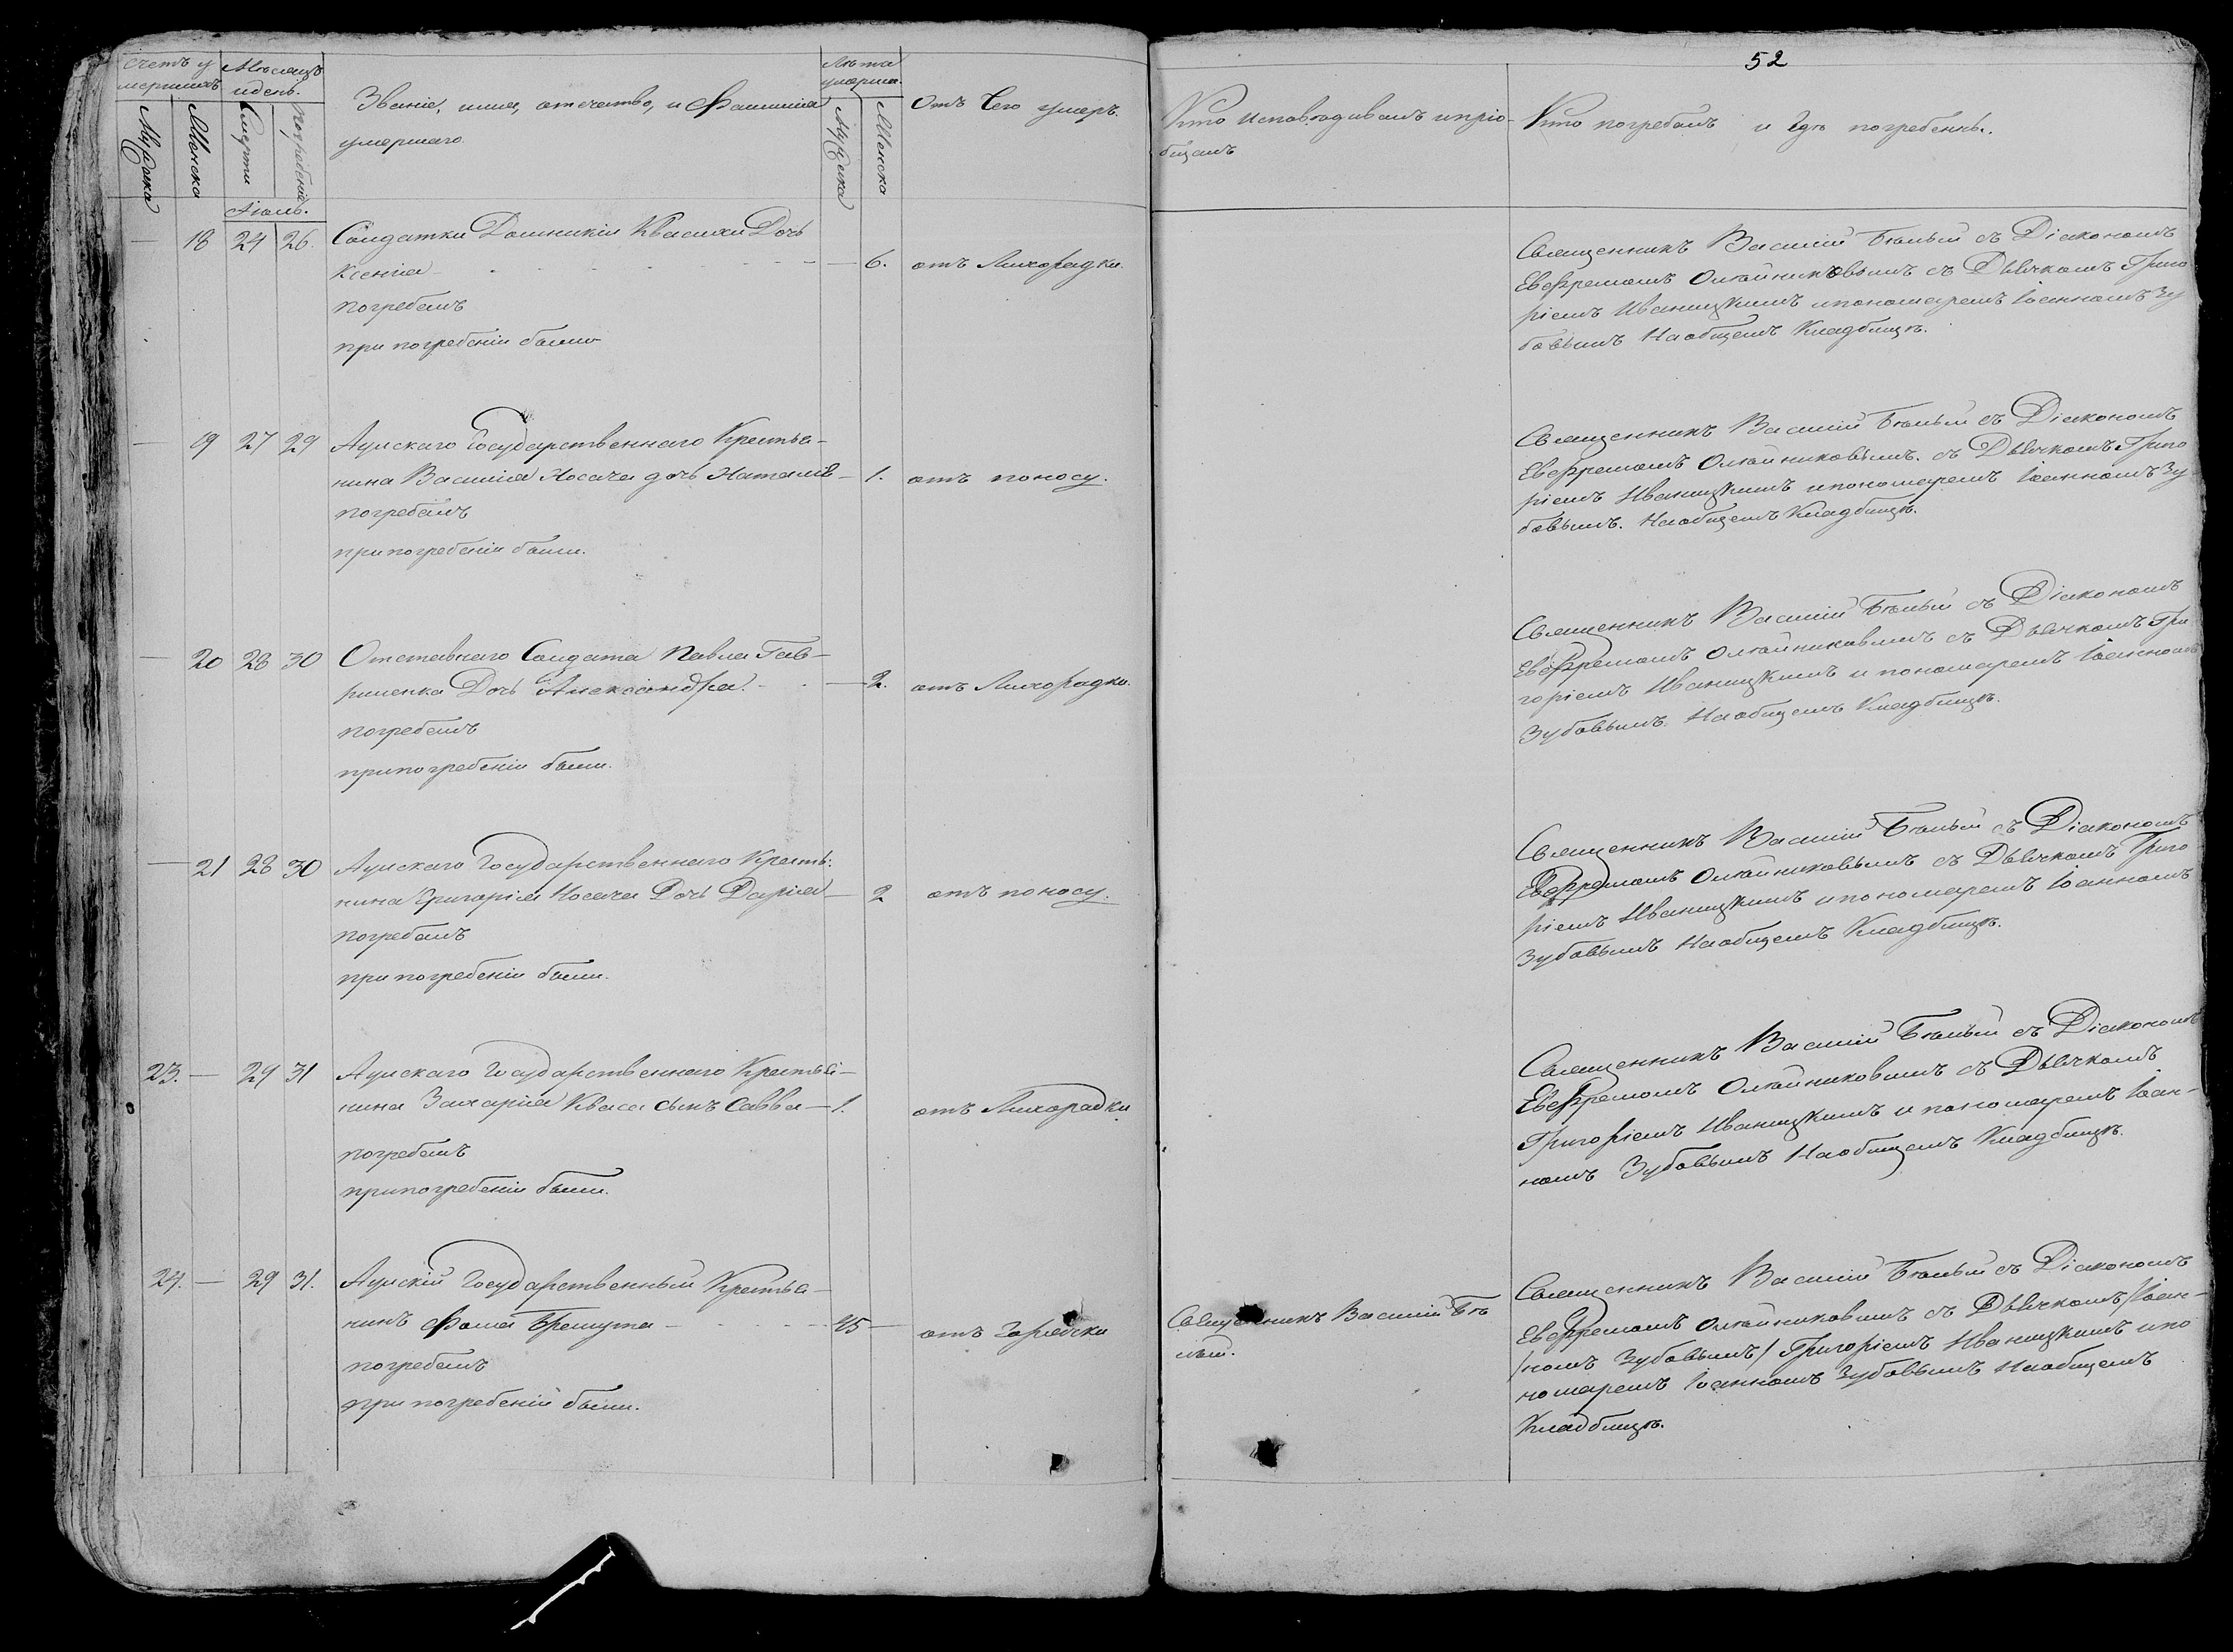 52
Счетъ у
мершихъ
Мѣсяцъ
и день.
Званіе, имя, отечество, и Фамилія
умершаго.
Лѣта
умерша.
Отъ Чего умеръ.
Кто Исповѣдивалъ и прiо-
бщалъ
Кто погребалъ и Гдѣ погребенны.
Мужска
Женска
Смерти
Погребенія
Мужска
Женска
Іюль.
— 18 24 26. Солдатки Домникіи Квасихи Дочь
Ксенія — 6. отъ Лихорадки.
погребалъ
при погребеніи были
Священникъ Василій Бѣлый съ Діакономъ
Евфремомъ Олѣйниковымъ съ Дьячкомъ Григо
ріемъ Иваницкимъ и пономаремъ Іоанномъ Зу
бовымъ На общемъ Кладбищѣ.
— 19 27 29 Аулскаго Государственнаго Крестья-
нина Василія Носача дочь Наталія — 1. отъ поносу.
погребалъ
при погребеніи были.
Священникъ Василій Бѣлый съ Діакономъ
Евфремомъ Олѣйниковымъ. съ Дьячкомъ Григо
ріемъ Иваницкимъ и пономаремъ Іоанномъ Зу
бовымъ. На общемъ Кладбищѣ.
— 20 28 30 Отставнаго Солдата Павла Гав-
риленка Дочь Александра. — 2. отъ Лихорадки.
погребалъ
при погребеніи были.
Священникъ Василій Бѣлый съ Діакономъ
Евфремомъ Олѣйниковымъ съ Дьячкомъ Гри
горіемъ Иваницкимъ и пономаремъ Іоанномъ
Зубовымъ. На общемъ Кладбищѣ.
— 21 28 30 Аулскаго Государственнаго Кресть:
нина Григорія Носача Дочь Дарія — 2 отъ поносу.
погребалъ
при погребеніи были.
Священникъ Василій Бѣлый съ Діакономъ
Евфремомъ Олѣйниковымъ съ Дьячкомъ Григо
ріемъ Иваницкимъ и пономаремъ Іоанномъ
Зубовымъ На общемъ Кладбищѣ.
23. — 29 31 Аулскаго Государственнаго Крестья-
нина Захарія Кваса сынъ Савва — 1. отъ Лихорадки.
погребалъ
при погребеніи были.
Священникъ Василій Бѣлый съ Діакономъ
Евфремомъ Олѣйниковымъ съ Дьячкомъ
Григоріемъ Иваницкимъ и пономаремъ Іоан-
номъ Зубовымъ На общемъ Кладбищѣ.
24. — 29 31. Аулскій Государственный Крестья-
нинъ Фома — 45 — отъ Горячки
погребалъ
при погребеній были.
Священникъ Василій Бѣ
лый.
Священникъ Василій Бѣлый съ Діакономъ
Евфремомъ Олѣйниковымъ съ Дьячкомъ /Іоан-
/номъ Зубовымъ/ Григоріемъ Иваницкимъ и по
номаремъ Іоанномъ Зубовымъ На общемъ
Кладбищѣ.